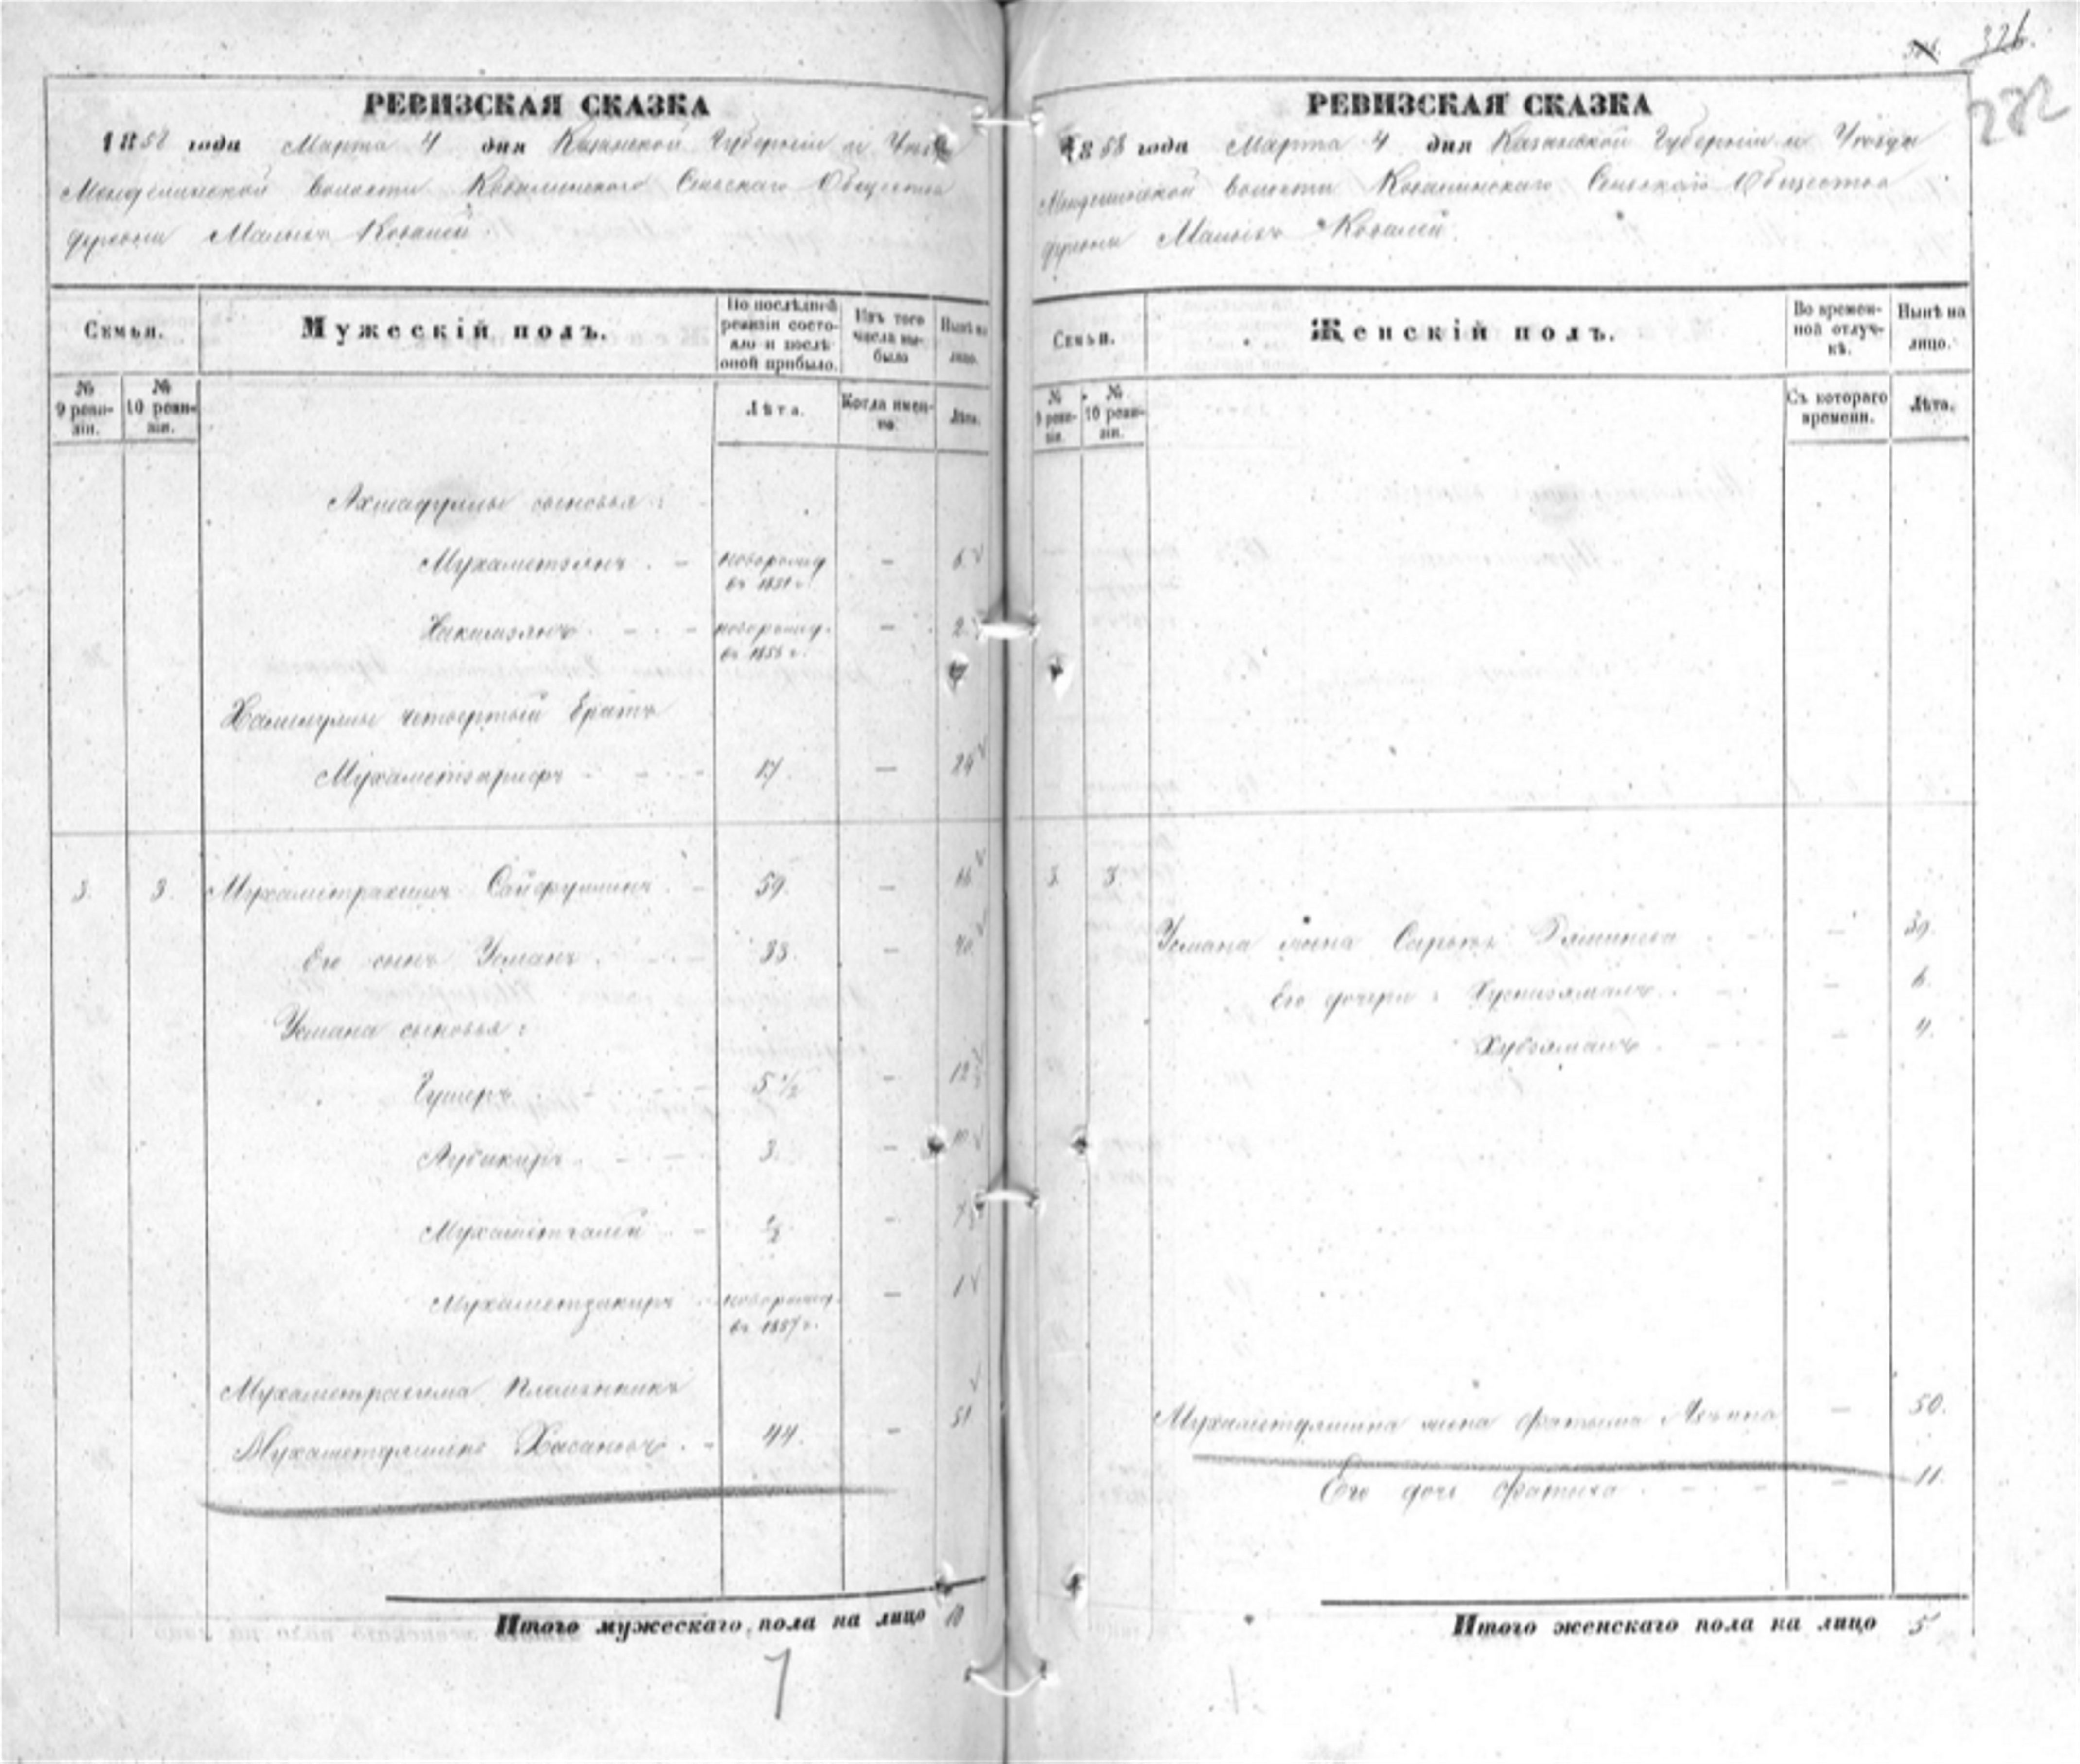 326.
232
РЕВИЗСКАЯ СКАЗКА
1858 года Марта 4 дня Казанской Губерніи и Уѣзда
волости Ковалинскаго Сельскаго Общества
деревни Малыхъ Ковалей
Семьи.
Мужескій полъ.
По послѣдней ревизіи состояло и послѣ оной прибыло.
Изъ того числа выбыло
Нынѣ на лицо.
№ 9 ревизіи.
№ 10 ревизіи.
Лѣта.
Когда именно.
Лѣта.
сыновья:
Мухаметзянъ - новорожд въ 1851 г. - 6
Хакимзянъ - новорожд. въ 1856 г. - 2
четвертый братъ
Мухаметзарифъ - 17 - 24
3. 3. Мухаметрахимъ Сайфуллинъ - 59. - 66
Его сынъ Усманъ - 33. - 40
Усмана сыновья:
Гумеръ - 5 1/2 - 12
Абубакиръ - 3. - 10
Мухаметгалей - 1/2 - 7
Мухаметзакиръ новорожд. въ 1857 г. - 1
Мухаметрахима племянникъ
Мухаметуллинъ Хасановъ - 44. - 51
Итого мужескаго пола на лицо 10
РЕВИЗСКАЯ СКАЗКА
1858 года Марта 4 дня Казанской Губерніи и Уѣзда
волости Ковалинскаго Сельскаго Общества
деревни Малыхъ Ковалей.
Семьи.
Женскій полъ.
Во временной отлучкѣ.
Нынѣ на лицо.
№ 9 ревизіи.
№ 10 ревизіи.
Съ котораго времени.
Лѣта.
3. 3.
Усмана жена - 39.
Его дочери: Хуснизямалъ - 6.
Хубзямалъ - 4.
жена Фатыма - 50.
Его дочь Фатиха - 11.
Итого женскаго пола на лицо 5